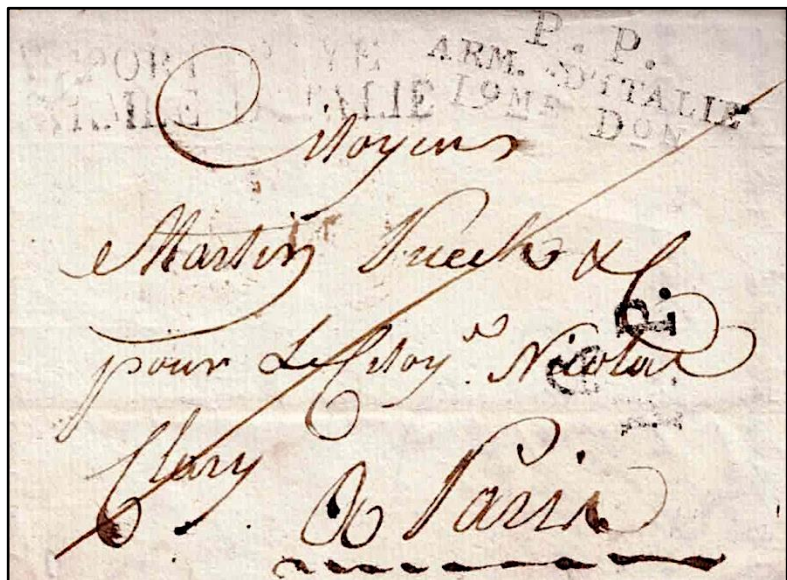 PORT PAYE
ITALIE
P. P.
ARM. D'ITALIE
19ME DON
Citoyens
Martin Pueck & C.
P.
pour Le Citoyen. Nicolas
Clary
A Paris